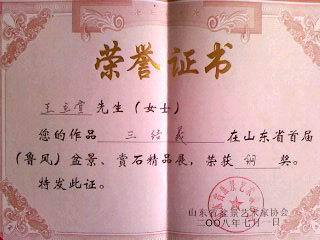 荣誉证书
王立宣 先生(女士)
您的作品 三结义 在山东省首届
(鲁风)盆景、赏石精品展,荣获 铜 奖。
特发此证。
山东省盆景艺术家协会
二〇〇八年七月一日